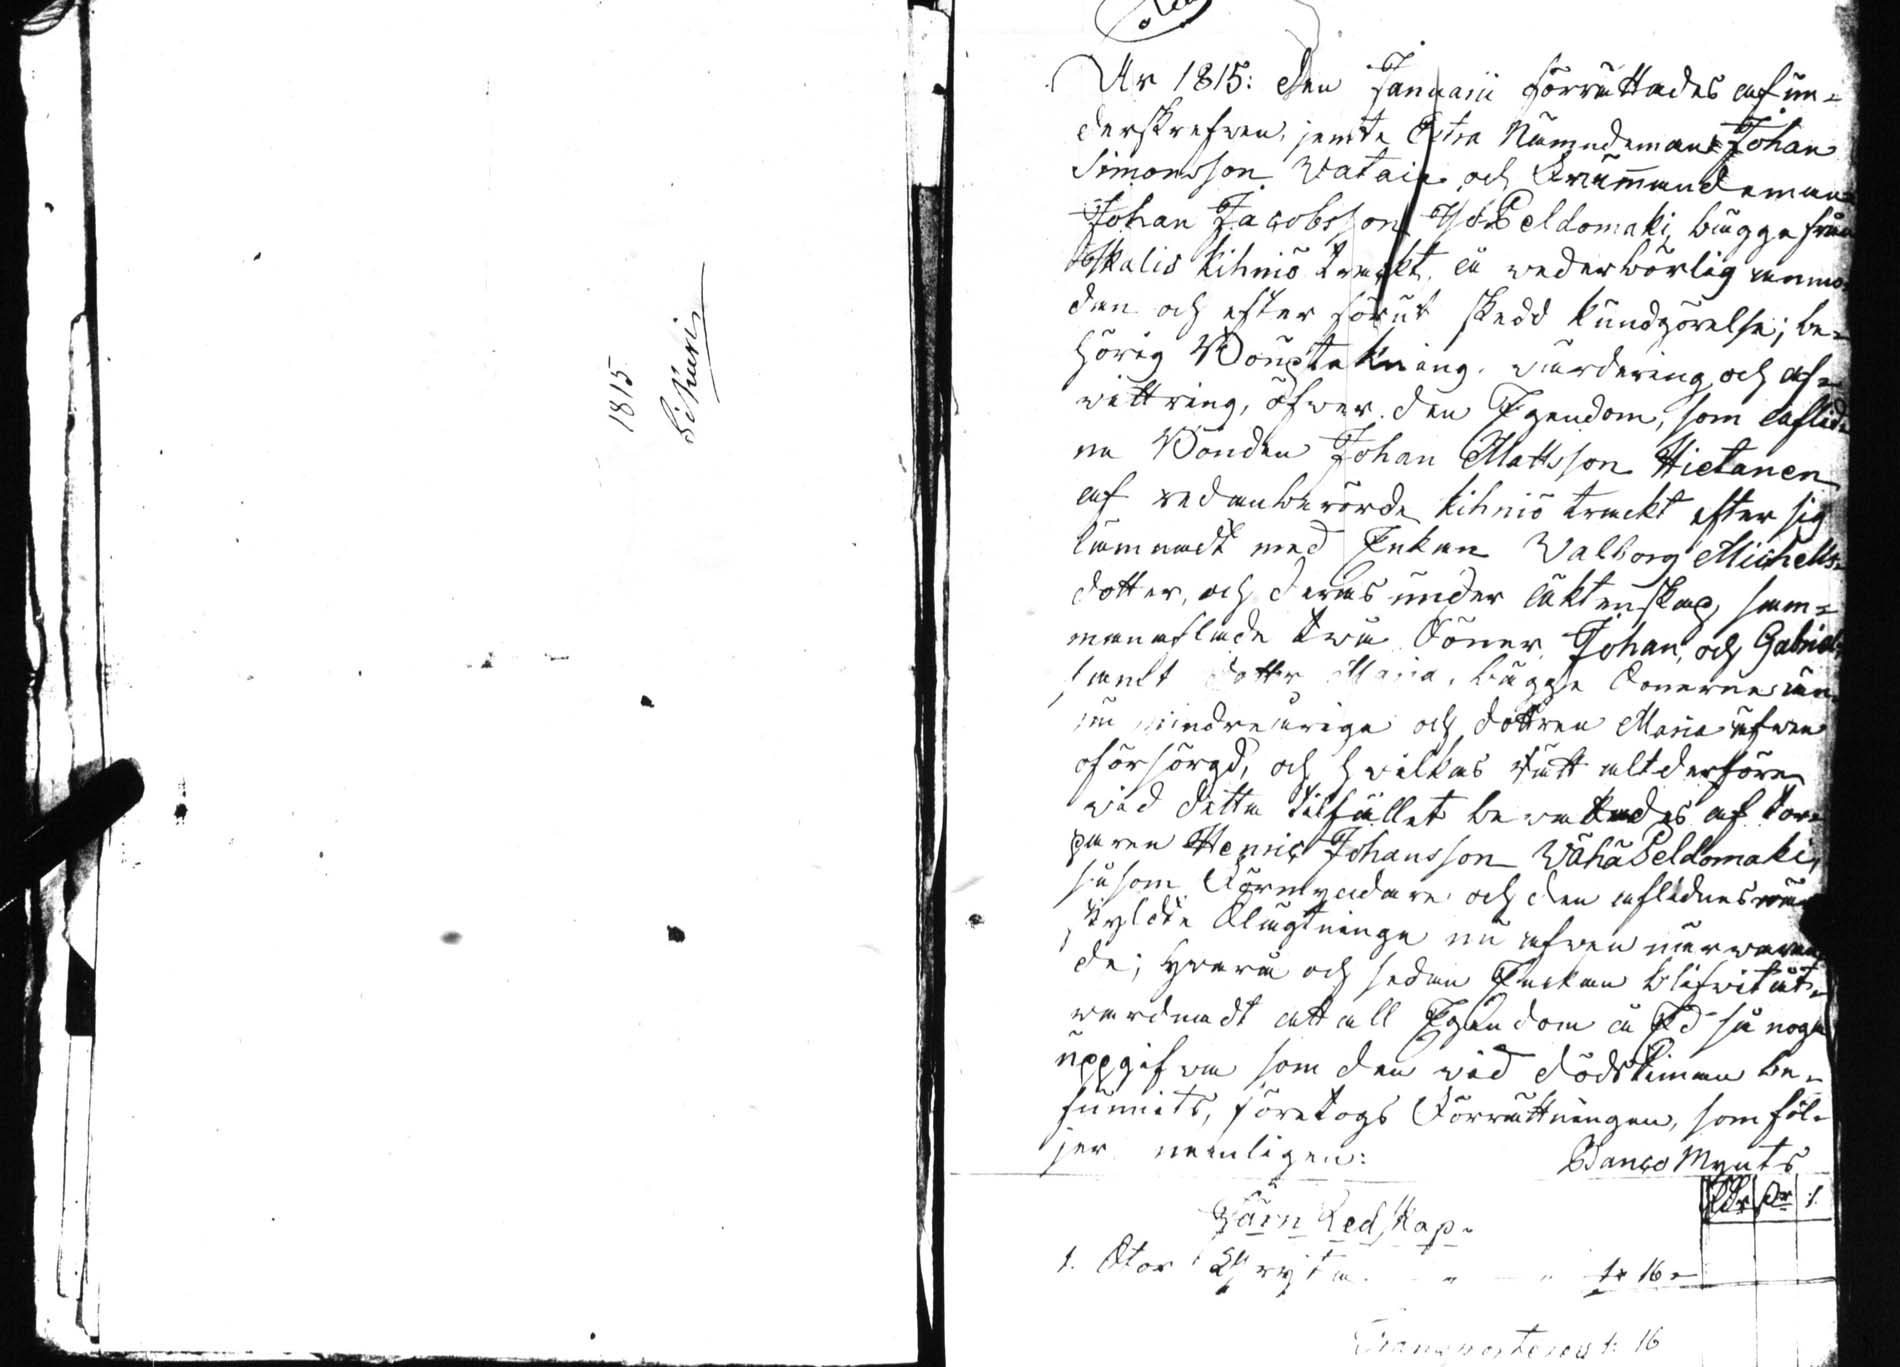 1815
År 1815: den Januarii förrättades af un-
derskrefven, jemte Extra Nämndeman Johan
Simonsson Wataia och Nämndeman
Johan Jacobsson Yli Peldomäki, bägge från
Skalis Kihniö trackt, å wederbörlig anmo-
dan och efter förut skedd kundgörelse; be-
hörig Boupteckning, wärdering och af-
wittring, öfwer den Egendom, som aflid-
ne Bonden Johan Mattsson Hietanen
af redanberörde Kihniö trackt efter sig
lämnadt med Enkan Walborg Michells-
dotter, och deras under äktenskap sam-
manaflade twå Söner Johan, och Gabriel,
samt dotter Maria, bägge Sönerne än-
nu mindreårige och dottren Maria äfwen
oförsörgd, och hwilkas rätt altderföre
wid detta tilfället bewakades af Tor-
paren Henric Johansson Wähä Peldomäki,
såsom Förmyndare och den aflidnes
skylde Slägtninge nu äfwen närwaran-
de; hwarå och sedan Enkan blifwit åt-
warnadt att all Egendom å Ed så noga
uppgifwa som den wid dödstiman be-
funnits, företogs Förrättningen, som föl-
jer nemligen:
Banco Mynts
Rdr
Järn Redskap.
1. Stor Gryta 1: 16
Transporteras 1: 16